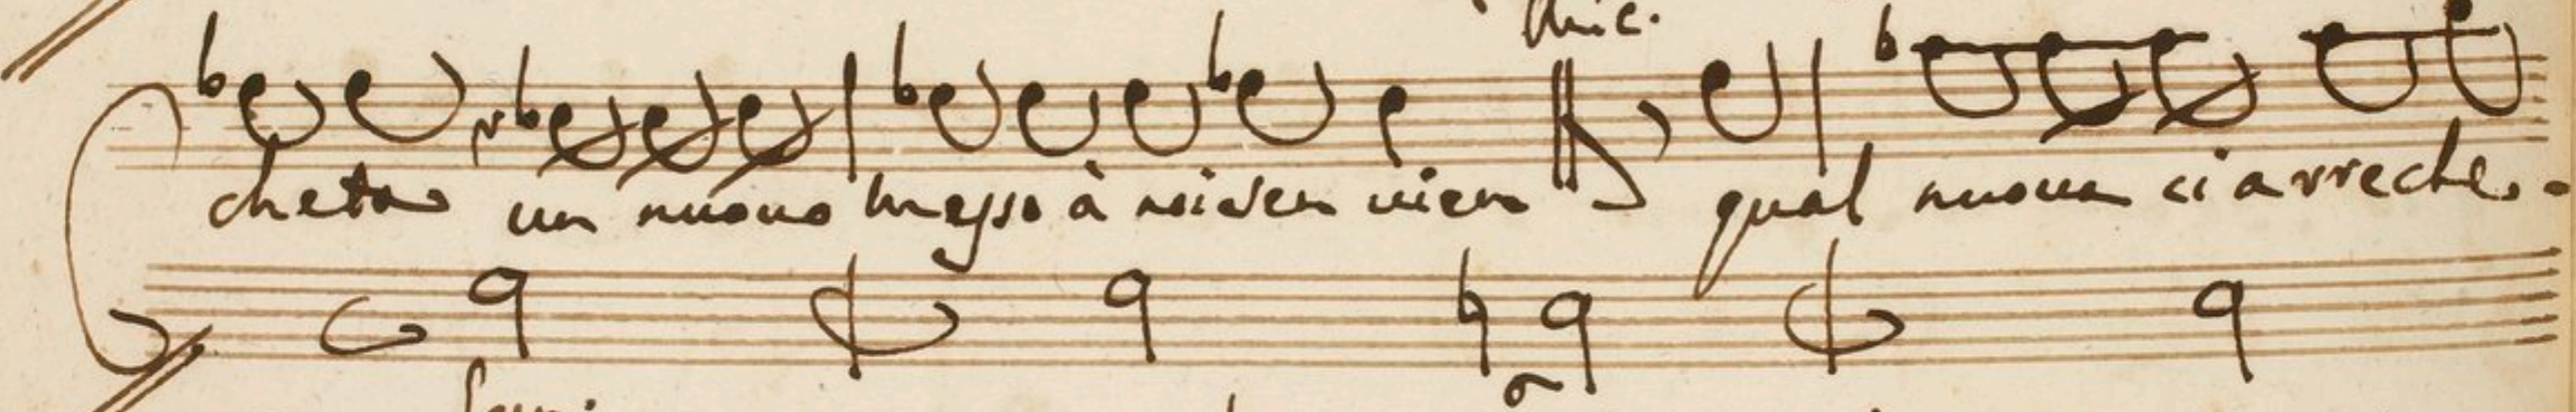 Mic.
cheta un nuouo messo à noi sen uien qual nuoua ci a rreche.
6